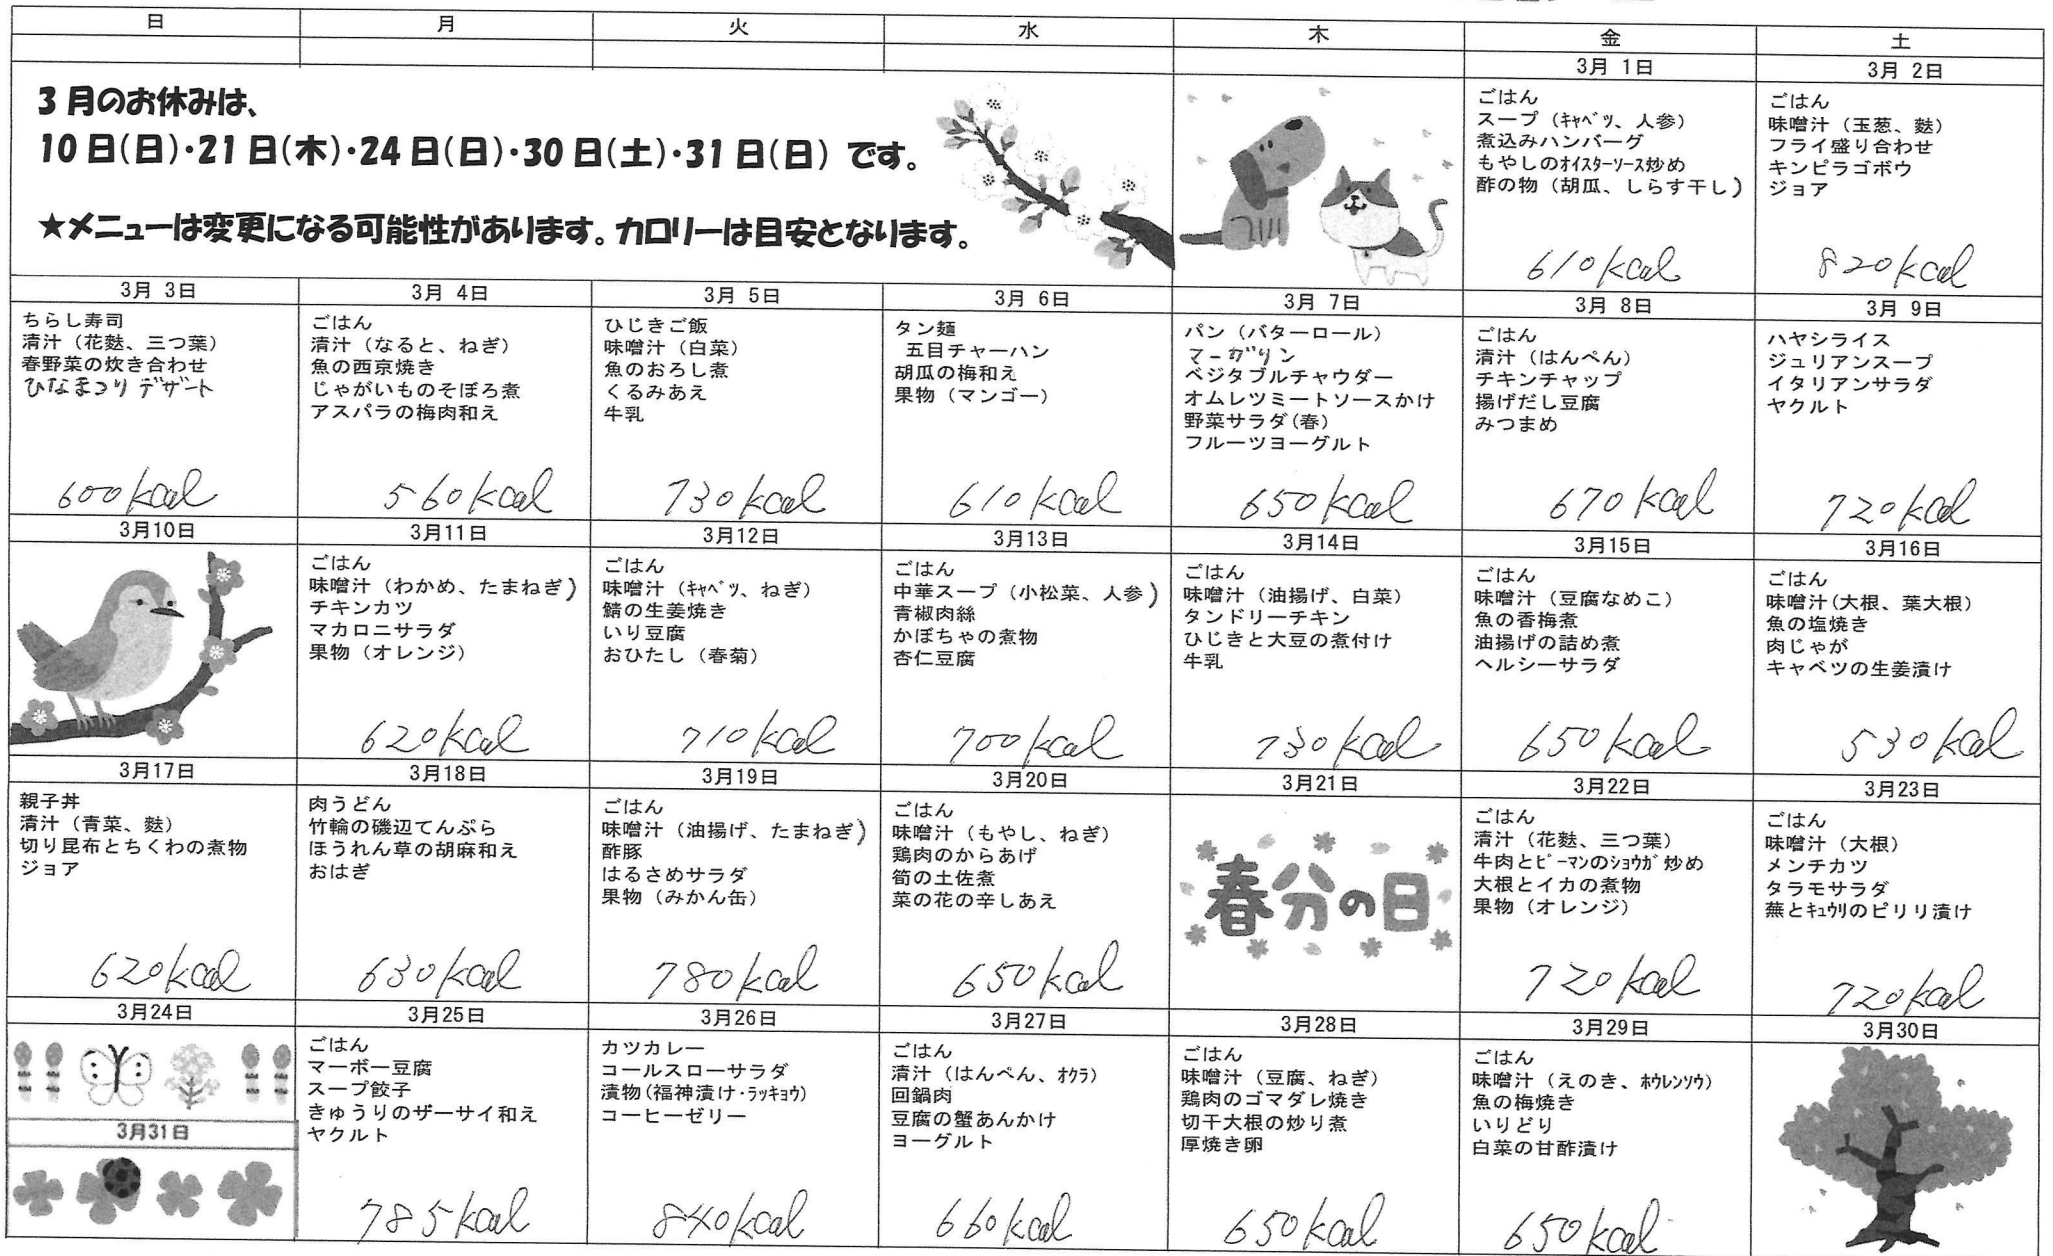 日 月 火 水 木 金 土
3月 1日 3月 2日
3月のお休みは、
10日(日)・21日(木)・24日(日)・30日(土)・31日(日) です。
★メニューは変更になる可能性があります。カロリーは目安となります。
ごはん
スープ（ｷｬﾍﾞﾂ、人参）
煮込みハンバーグ
もやしのｵｲｽﾀｰｿｰｽ炒め
酢の物（胡瓜、しらす干し）
610kcal
ごはん
味噌汁（玉葱、麩）
フライ盛り合わせ
キンピラゴボウ
ジョア
820kcal
3月 3日 3月 4日 3月 5日 3月 6日 3月 7日 3月 8日 3月 9日
ちらし寿司
清汁（花麩、三つ葉）
春野菜の炊き合わせ
ひなまつりデザート
600kcal
ごはん
清汁（なると、ねぎ）
魚の西京焼き
じゃがいものそぼろ煮
アスパラの梅肉和え
560kcal
ひじきご飯
味噌汁（白菜）
魚のおろし煮
くるみあえ
牛乳
730kcal
タン麺
五目チャーハン
胡瓜の梅和え
果物（マンゴー）
610kcal
パン（バターロール）
マーガリン
ベジタブルチャウダー
オムレツミートソースかけ
野菜サラダ(春)
フルーツヨーグルト
650kcal
ごはん
清汁（はんぺん）
チキンチャップ
揚げだし豆腐
みつまめ
670kcal
ハヤシライス
ジュリアンスープ
イタリアンサラダ
ヤクルト
720kcal
3月10日 3月11日 3月12日 3月13日 3月14日 3月15日 3月16日
ごはん
味噌汁（わかめ、たまねぎ）
チキンカツ
マカロニサラダ
果物（オレンジ）
620kcal
ごはん
味噌汁（ｷｬﾍﾞﾂ、ねぎ）
鯖の生姜焼き
いり豆腐
おひたし（春菊）
710kcal
ごはん
中華スープ（小松菜、人参）
青椒肉絲
かぼちゃの煮物
杏仁豆腐
700kcal
ごはん
味噌汁（油揚げ、白菜）
タンドリーチキン
ひじきと大豆の煮付け
牛乳
730kcal
ごはん
味噌汁（豆腐なめこ）
魚の香梅煮
油揚げの詰め煮
ヘルシーサラダ
650kcal
ごはん
味噌汁(大根、葉大根）
魚の塩焼き
肉じゃが
キャベツの生姜漬け
530kcal
3月17日 3月18日 3月19日 3月20日 3月21日 3月22日 3月23日
親子丼
清汁（青菜、麩）
切り昆布とちくわの煮物
ジョア
620kcal
肉うどん
竹輪の磯辺てんぷら
ほうれん草の胡麻和え
おはぎ
630kcal
ごはん
味噌汁（油揚げ、たまねぎ）
酢豚
はるさめサラダ
果物（みかん缶）
780kcal
ごはん
味噌汁（もやし、ねぎ）
鶏肉のからあげ
筍の土佐煮
菜の花の辛しあえ
650kcal
春分の日
ごはん
清汁（花麩、三つ葉）
牛肉とﾋﾟｰﾏﾝのｼｮｳｶﾞ炒め
大根とイカの煮物
果物（オレンジ）
720kcal
ごはん
味噌汁（大根）
メンチカツ
タラモサラダ
蕪とｷｭｳﾘのピリリ漬け
720kcal
3月24日 3月25日 3月26日 3月27日 3月28日 3月29日 3月30日
3月31日
ごはん
マーボー豆腐
スープ餃子
きゅうりのザーサイ和え
ヤクルト
785kcal
カツカレー
コールスローサラダ
漬物(福神漬け・ﾗｯｷｮｳ)
コーヒーゼリー
840kcal
ごはん
清汁（はんぺん、ｵｸﾗ）
回鍋肉
豆腐の蟹あんかけ
ヨーグルト
660kcal
ごはん
味噌汁（豆腐、ねぎ）
鶏肉のゴマダレ焼き
切干大根の炒り煮
厚焼き卵
650kcal
ごはん
味噌汁（えのき、ﾎｳﾚﾝｿｳ）
魚の梅焼き
いりどり
白菜の甘酢漬け
650kcal